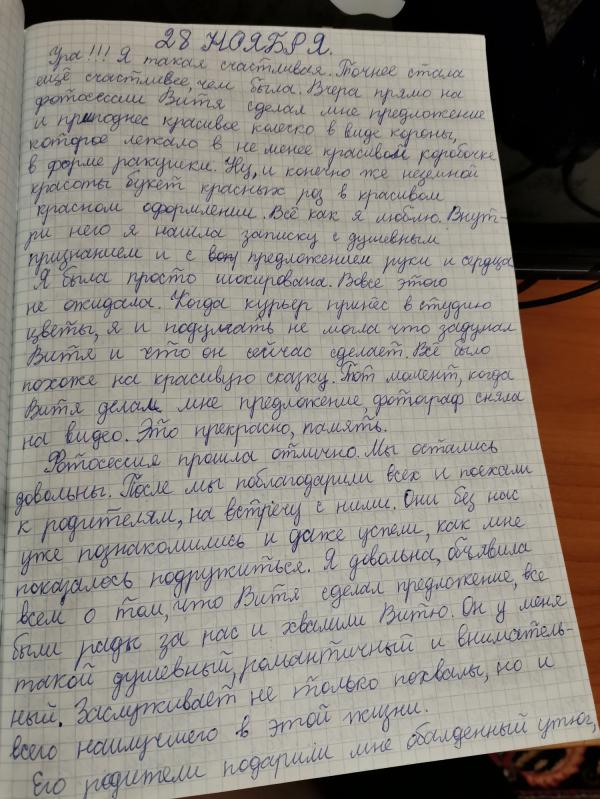 28 НОЯБРЯ.
Ура!!! Я такая счастливая. Точнее стала
ещё счастливее, чем была. Вчера прямо на
фотосессии Витя сделал мне предложение
и преподнес красивое колечко в виде короны,
которое лежало в не менее красивой коробочке
в форме ракушки. Ну, и конечно же неземной
красоты букет красных роз в красивом
красном оформлении. Всё как я люблю. Внут-
ри него я нашла записку с душевным
признанием и с предложением руки и сердца
Я была просто шокирована. Вовсе этого
не ожидала. Когда курьер принёс в студию
цветы, я и подумать не могла что задумал
Витя и что он сейчас сделает. Всё было
похоже на красивую сказку. Тот момент, когда
Витя делал мне предложение фотограф сняла
на видео. Это прекрасно, память.
Фотосессия прошла отлично. Мы остались
довольны. После мы поблагодарили всех и поехали
к родителям, на встречу с ними. Они без нас
уже познакомились и даже успели, как мне
показалось подружиться. Я довольна, объявила
всем о том, что Витя сделал предложение, все
были рады за нас и хвалили Витю. Он у меня
такой душевный, романтичный и вниматель-
ный. Заслуживает не только похвалы, но и
всего наилучшего в этой жизни.
Его родители подарили мне обалденный утюг,